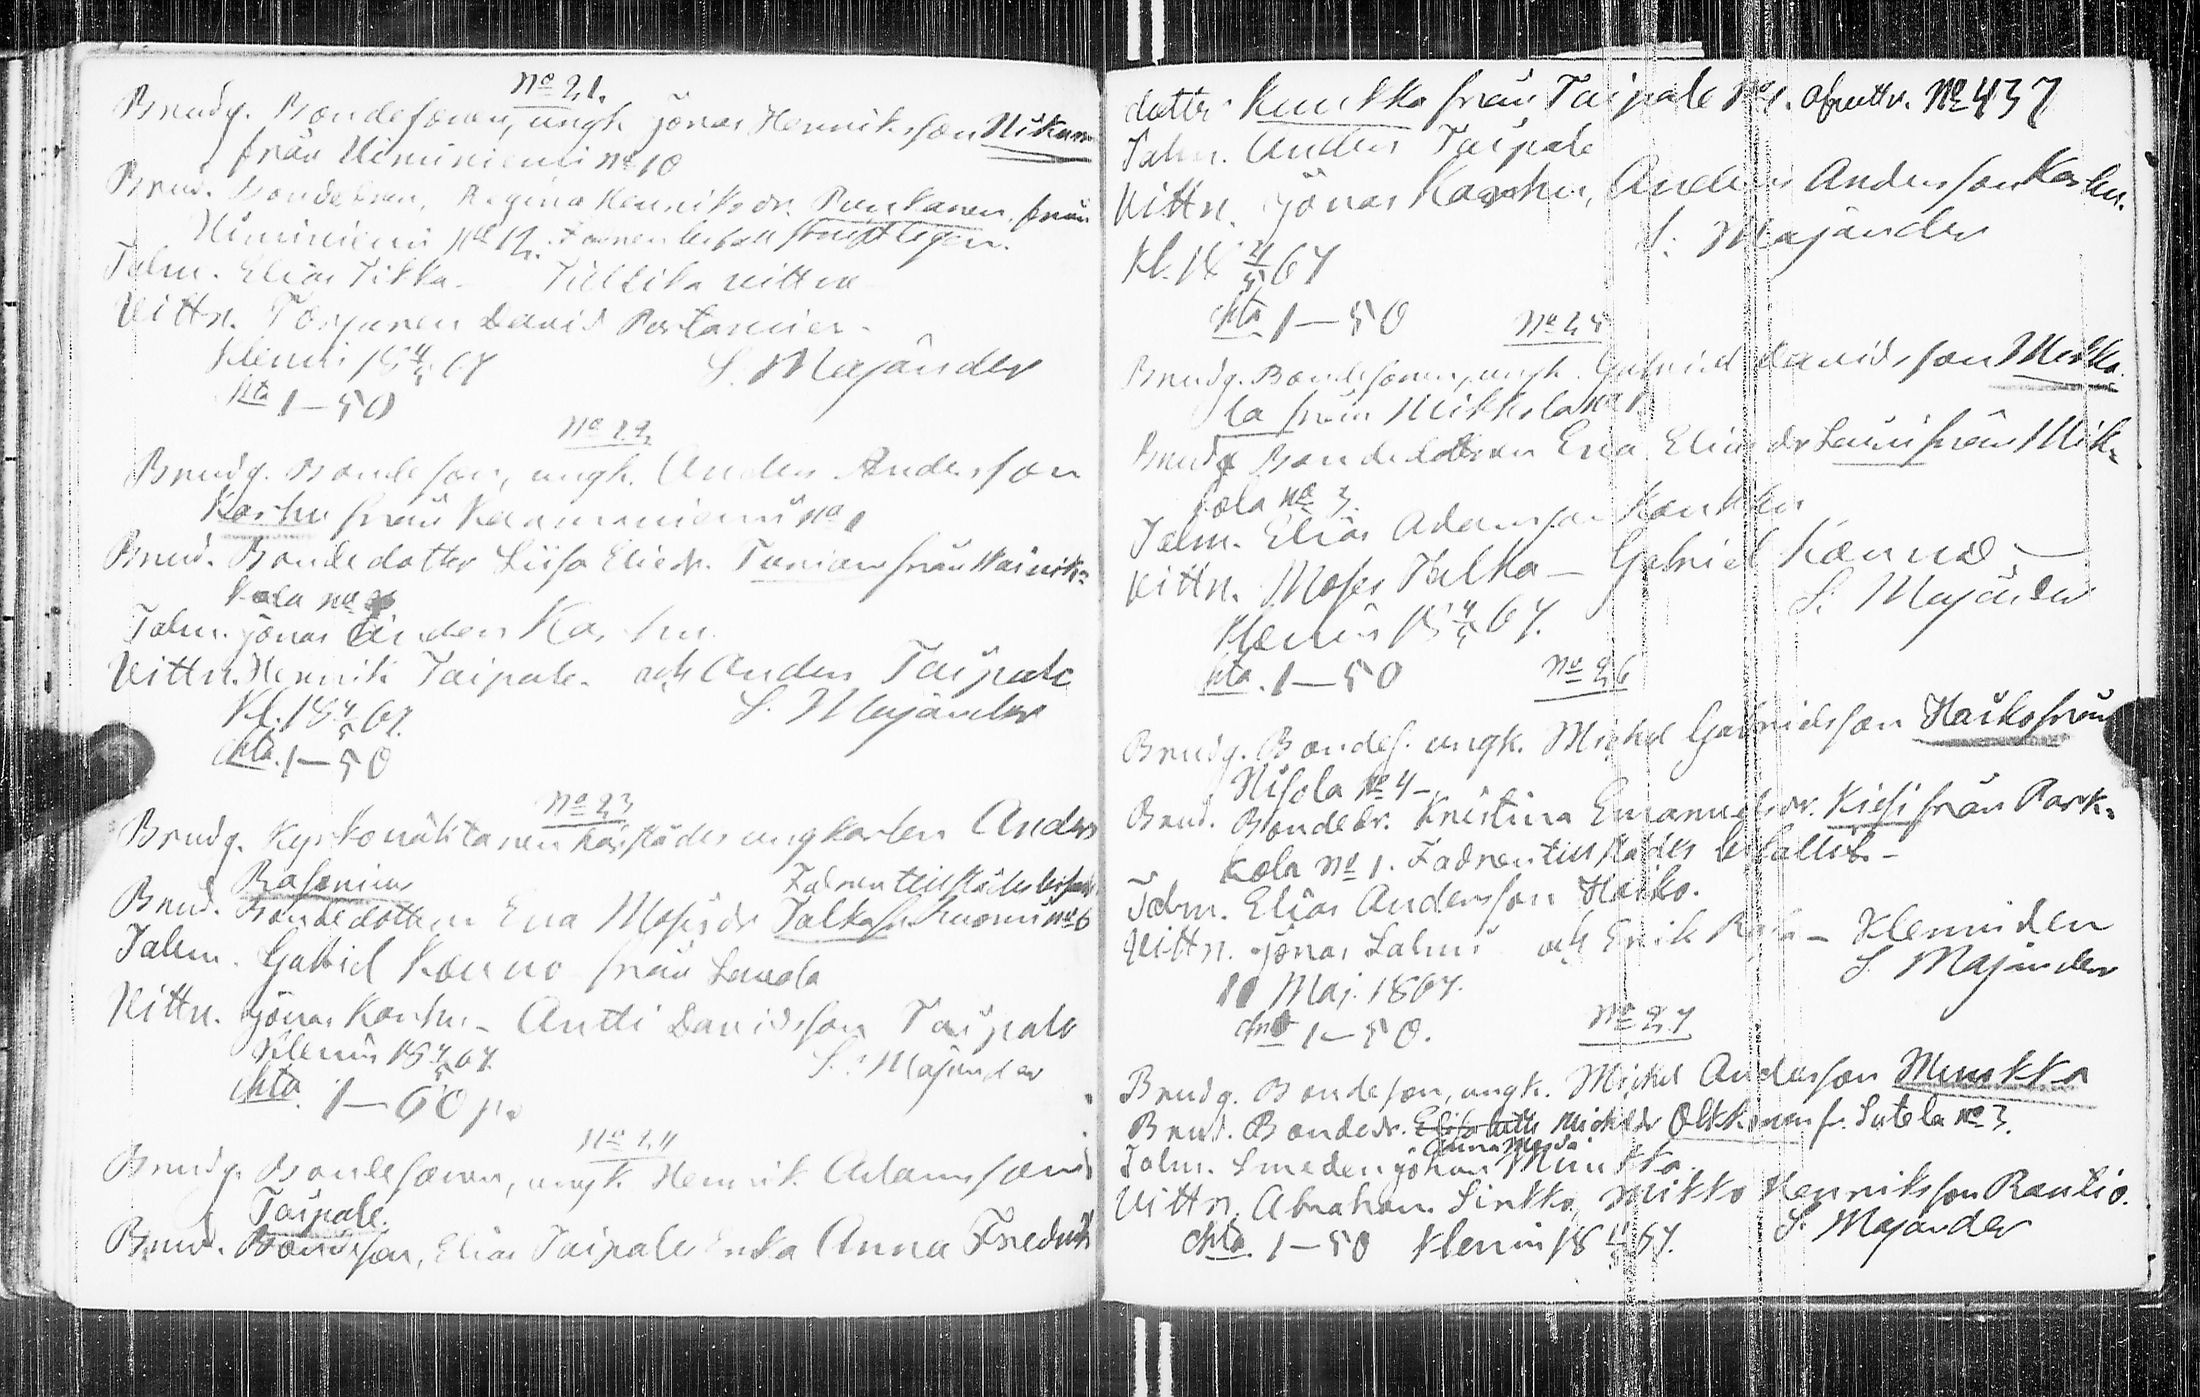 No 21.
Brudg. Bondesonen, ungk. Jonas Henriksson Hikanen
från Niiminiemi No 10
Brud. Bondedtren, Regina Henriksdr. Punkanen från
Niiminiemi No 12. Fadren bifall skriftligen.
Talm. Elias Tikka - Tillika vittne
Vittn. Torpanen David Partanen -
Klemis 18 4/5 67 S. Majander
Chta 1-50
No 22
Brudg. Bondeson, ungk. Anders Andersson
Korhu från Kaamaniemi No 1
Brud. Bondedotter Liisa Eliedr. Tunian från Hainik=
kala No
Talm. Jonas Anders Korhu.
Vittn. Henrik Taipale. och Anders Taipale
Kl. 18 4/5 67. S. Majander
Chta. 1-50
No 23
Brudg. Kyrkovaktaren härstädes ungkarlen Anders
Rosenius Fadren tillstädes bifall
Brud. Bondedottern Eva Mosisdr Talka fr. Kuorni No 6
Talm. Gabriel Konno från Lavola
Vittn. Jonas Korhu - Antti Davidsson Taipale
Klemis 18 4/5 67. S. Majander
Chta. 1-60 p.
No 24
Brudg. Bondesonen, ungk. Henrik Adamsson
Taipale.
Brud. Bondeson, Elias Taipales Enka Anna Fredrik
dotter Kuukka från Taipale No 1. afvittr. No 437
Talm. Anders Taipale
Vittn. Jonas Korhu, Anders Andersson Korhu.
Kl. 18 4/5 67 S. Majander
Chta 1-50
No 25
Brudg. Bondesonen, ungk. Gabriel Davidsson Mikko
la från Mikkola No 1.
Brud Bondedottren Eva Eliasdr Lauri från Mik=
kola No 3.
Talm. Elias Adamsson Kaukko
Vittn. Moses Talka - Gabriel Konno -
Klemis 18 4/5 67. S. Majander
Chta. 1-50
No 26
Brudg. Bondes. ungk. Michel Gabrielsson Haiko från
Nisola No 4 -
Brud. Bondedr. Kristina Emanuelsdr. Kiesi från Park=
kola No 1. Fadren tillstädes bifaller -
Talm. Elias Andersson Haiko.
Vittn. Jonas Salmi och Erik - Klemis den
11 Maj. 1867. S. Majander
Chta 1-50.
No 27
Brudg. Bondeson, ungk. Michel Andersson Muukka
Brud. Bondedr. Elisabeth Mickelsdr Olkkonen fr. Sutela No 3.
Anna Maria
Talm. Smeden Johan Muukka.
Vittn. Abraham Sirkko, Mikko Henriksson Rautio.
Chta 1-50 Klemis 18 4/5 67. S. Majander